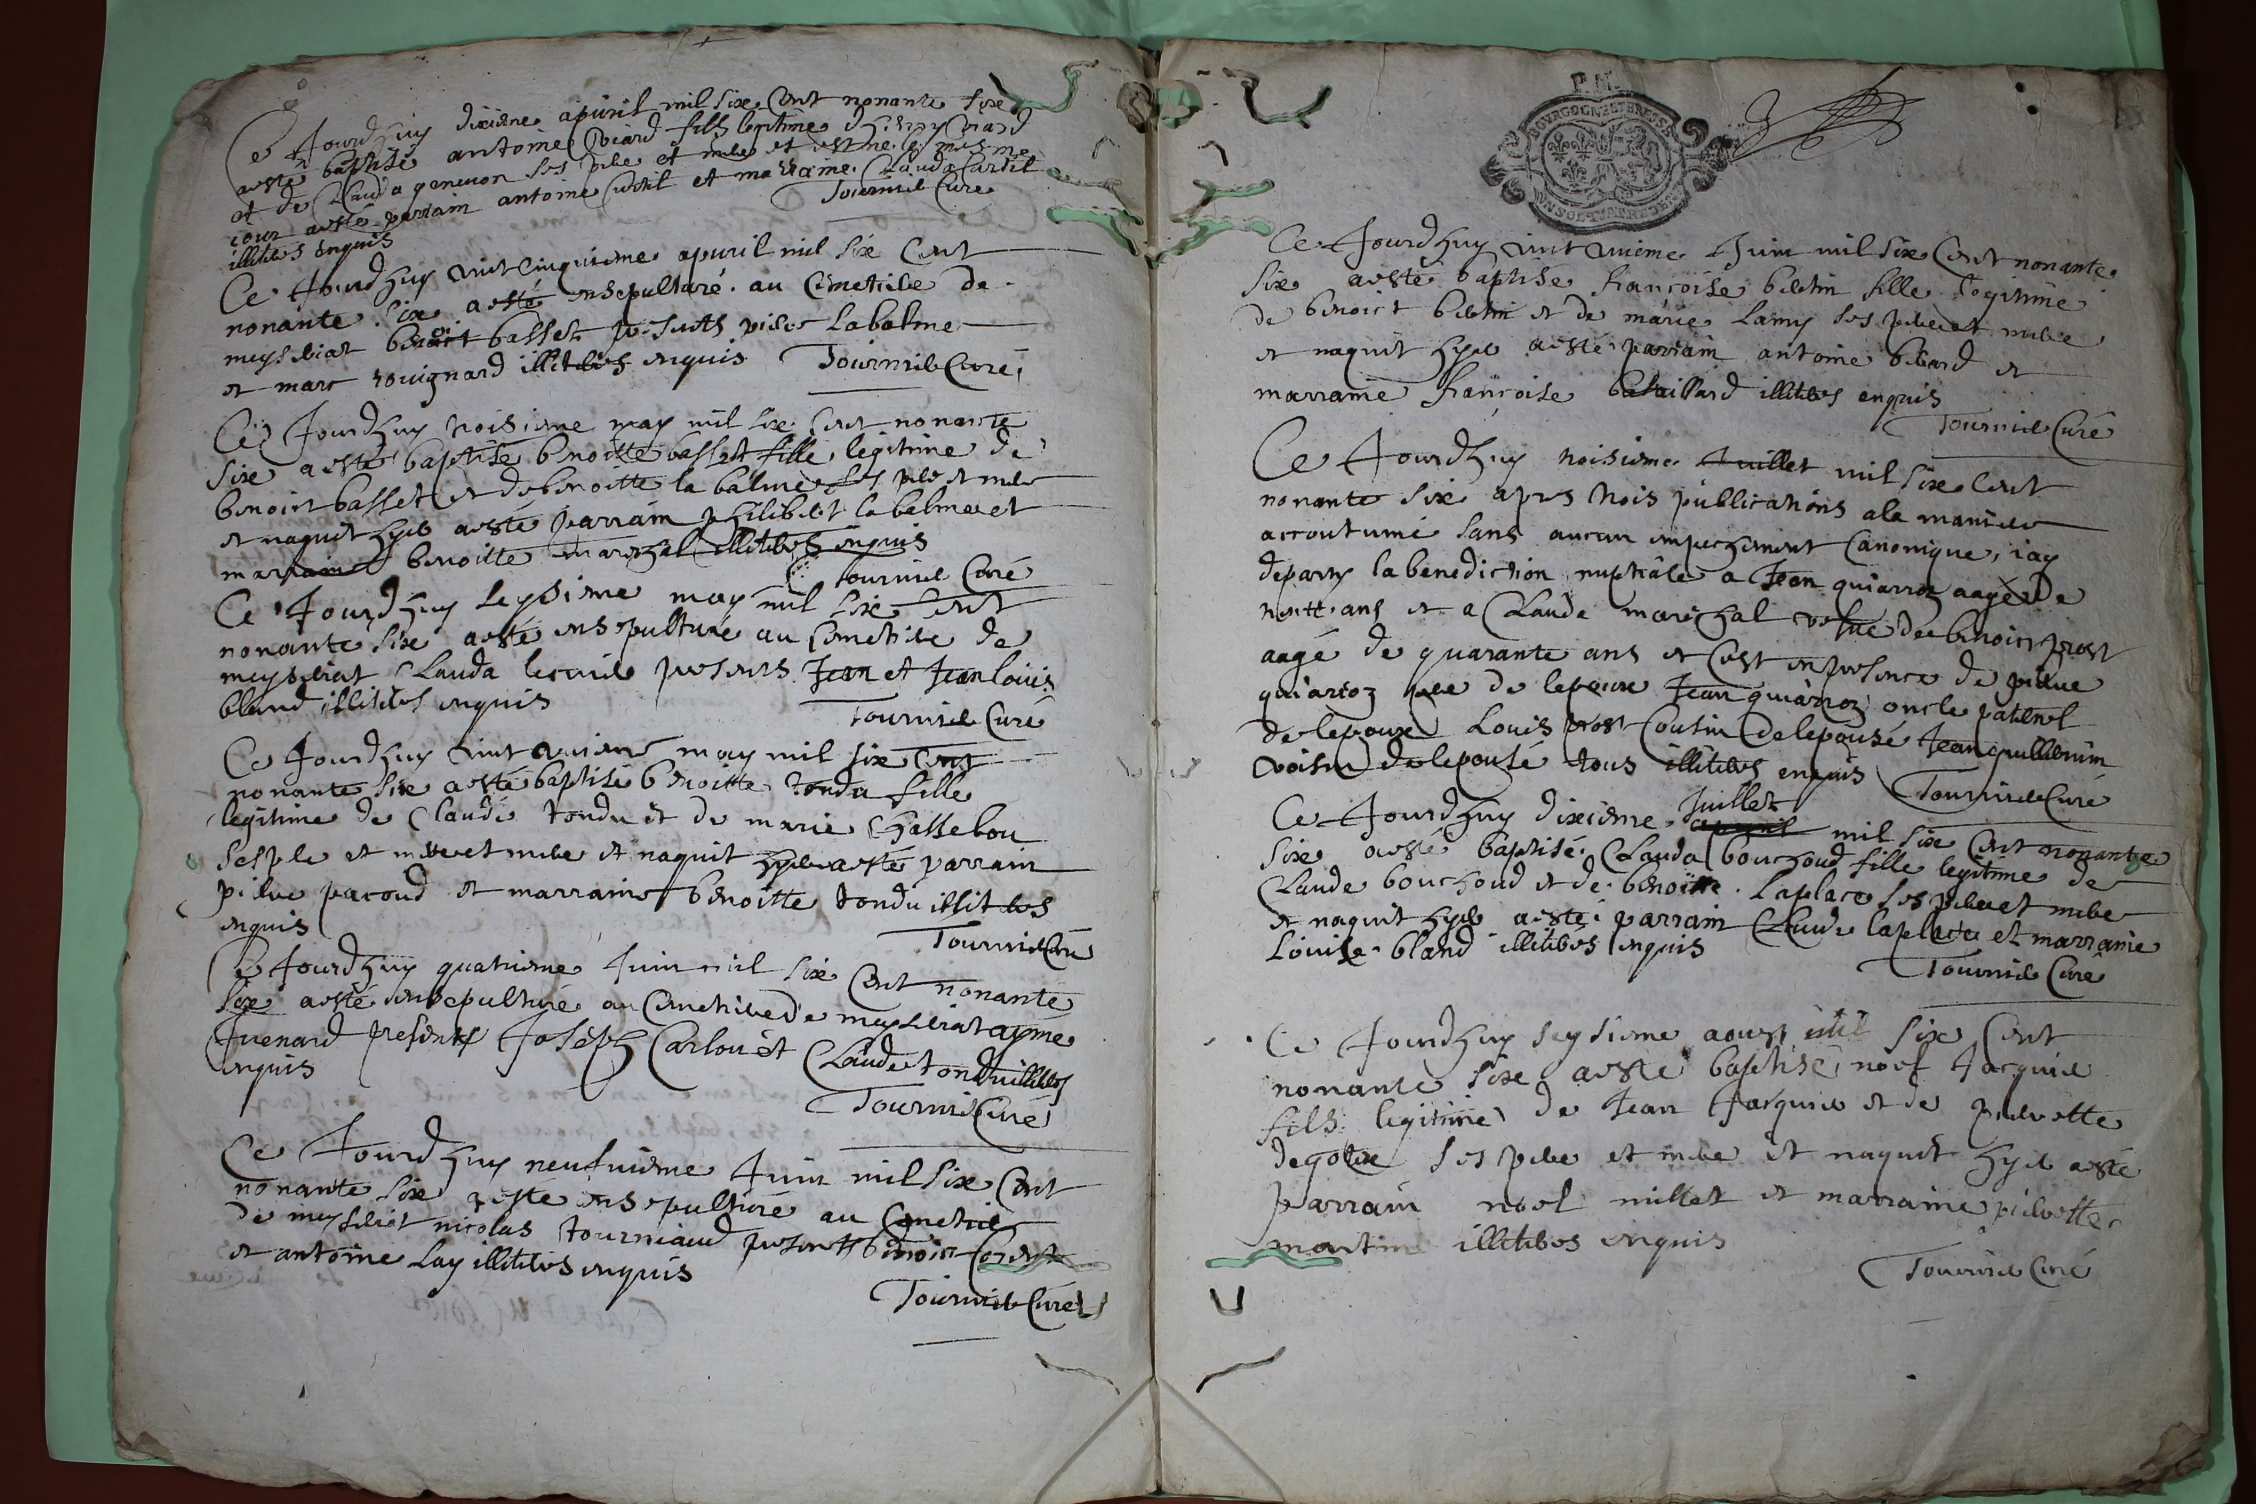 Ce Jourdhuy dixiéme apuril mil six Cent nonante six
a esté baptisé antoine Vicard fils legitime dhenry Vicard
et de Clauda geneuon ses pere et mere et est ne le mesme
iour a esté parrain antoine et marraine Clauda
illiterés enquis Tournier Curé
Ce Jourdhuy vint cinquieme apuril mil six Cent
nonante six a esté ensepulturé au Cimetiere de
meyseriat benoit basset presents pierre Labalme
et marc rouignard illiterés enquis Tournier Curé
Ce Jourdhuy troisieme may mil six Cent nonante
six a esté baptisé benoitte basset fille legitime de
benoict basset et de benoitte la balme ses pere et mere
et naquit hyer a esté parrain philibert la balme et
marraine benoitte marechal illiterés enquis
Tournier Curé
Ce Jourdhuy seysieme may mil six Cent
nonante six a esté ensepulturé au Cimetiere de
meyseriat Clauda presents Jean et Jean louis
bland illiterés enquis
Tournier Curé
Ce Jourdhuy vint may mil six Cent
nonante six a esté baptisé benoitte tondu fille
legitime de Claude tondu et de marie Chassebou
ses pere et mere et mere et naquit hyer a esté parrain
pierre pacoud et marraine benoitte tondu illiterés
enquis
Tournier Curé
Ce Jourdhuy quatrieme Juin mil six Cent nonante
six a esté ensepulturé au Cimetiere de meyseriat ayme
Juenard presents Joseph Carlou et Claude tondu illiterés
enquis
Tournier Curé
Ce Jourdhuy neufuieme Juin mil six Cent
nonante six a esté ensepulturé au Cimetiere
de meyseriat nicolas tourniaud presents benoict
et antoine Lay illiterés enquis
Tournier Curé
BOURGOGNE ET BRESSE
Ce Jourdhuy vint Juin mil six Cent nonante
six a esté baptise francoise bertin fille legitime
de benoict bertin et de marie Lamy ses pere et mere
et naquit hyer a esté parrain antoine et
marraine francoise bataillard illiterés enquis
Tournier Curé
Ce Jourdhuy troisieme Juillet mil six Cent
nonante six apres trois publications a la maniere
accoutumé sans aucun empechement Canonique, iay
departy la benediction nuptiale a Jean quiarroz aagé de
trente ans et a Claude marechal vefue de benoict prost
aagé de quarante ans et Cest en presence de pierre
quiarroz pere de lepoux Jean quiarroz oncle paternel
de lepoux Louis prost Cousin de lepousé Jean guillermin
voisin de lepousé tous illiterés enquis Tournier Curé
Ce Jourdhuy dixieme Juillet mil six Cent nonante
six a esté baptisé Clauda bouchoud fille legitime de
Claude bouchoud et de benoitte Laplace ses pere et mere
et naquit hyer a esté parrain Claude laplace et marraine
Louise bland illiterés enquis
Tournier Curé
Ce Jourdhuy seysieme aoust mil six Cent
nonante six a esté baptisé noel Jacquier
fils legitime de Jean Jacquier et de pierrette
degolee ses pere et mere et naquit hyer a esté
parrain noel millet et marraine pierrette
martine illiterés enquis
Tournier Curé